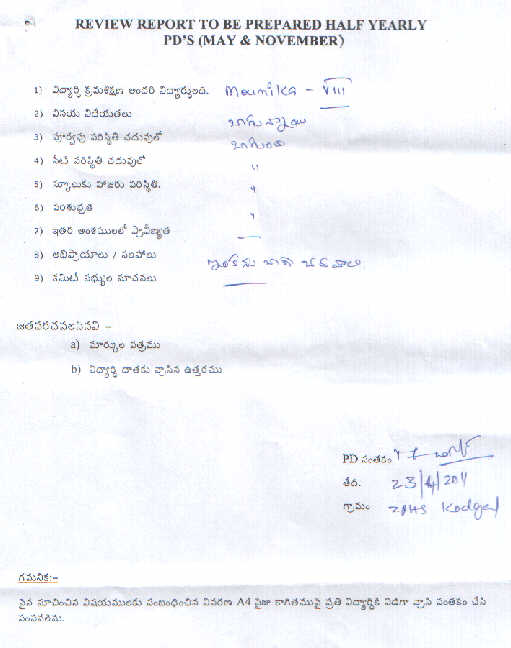 REVIEW REPORT TO BE PREPARED HALF YEARLY
PD'S (MAY & NOVEMBER)
1) విద్యార్థి క్రమశిక్షణ అందరి విద్యార్థులది. Mounika - VIII
2) వినయ విదేయతలు
3) పూర్వపు పరిస్థితి చదువులో బాగుంది
4) నేటి పరిస్థితి చదువులో "
5) స్కూలుకు హాజరు పరిస్థితి. "
6) పరిశుభ్రత "
7) ఇతర అంశములలో ప్రావీణ్యత —
8) అభిప్రాయాలు / సలహాలు ఇంకను బాగా చదవాలి
9) కమిటీ సభ్యుల సూచనలు —
జతపరచవలసినవి :-
a) మార్కుల పత్రము
b) విద్యార్థి దాతకు వ్రాసిన ఉత్తరము
PD సంతకం
తేది. 23/4/2011
గ్రామం ZPHS Kodgal
గమనిక:-
పైన సూచించిన విషయములకు సంబంధించిన వివరణ A4 సైజు కాగితముపై ప్రతి విద్యార్థికి విడిగా వ్రాసి సంతకం చేసి
పంపవలెను.